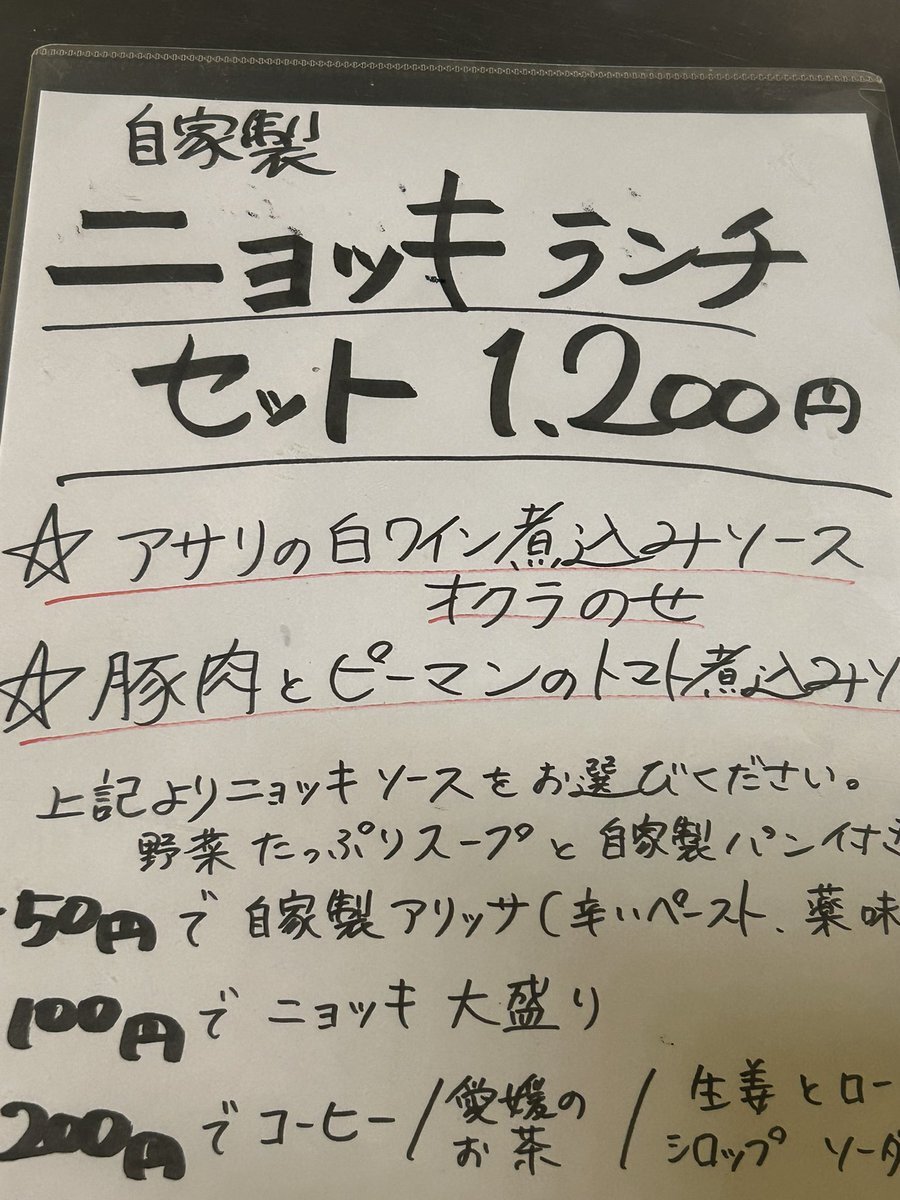 自家製
ニョッキランチ
セット 1.200円
☆ アサリの白ワイン煮込みソース
オクラのせ
☆ 豚肉とピーマンのトマト煮込みソ
上記よりニョッキソースをお選びください。
野菜たっぷりスープと自家製パン付
50円で自家製アリッサ(辛いペースト、薬味
100円でニョッキ大盛り
200円でコーヒー/愛媛のお茶/生姜とロー
シロップソーダ